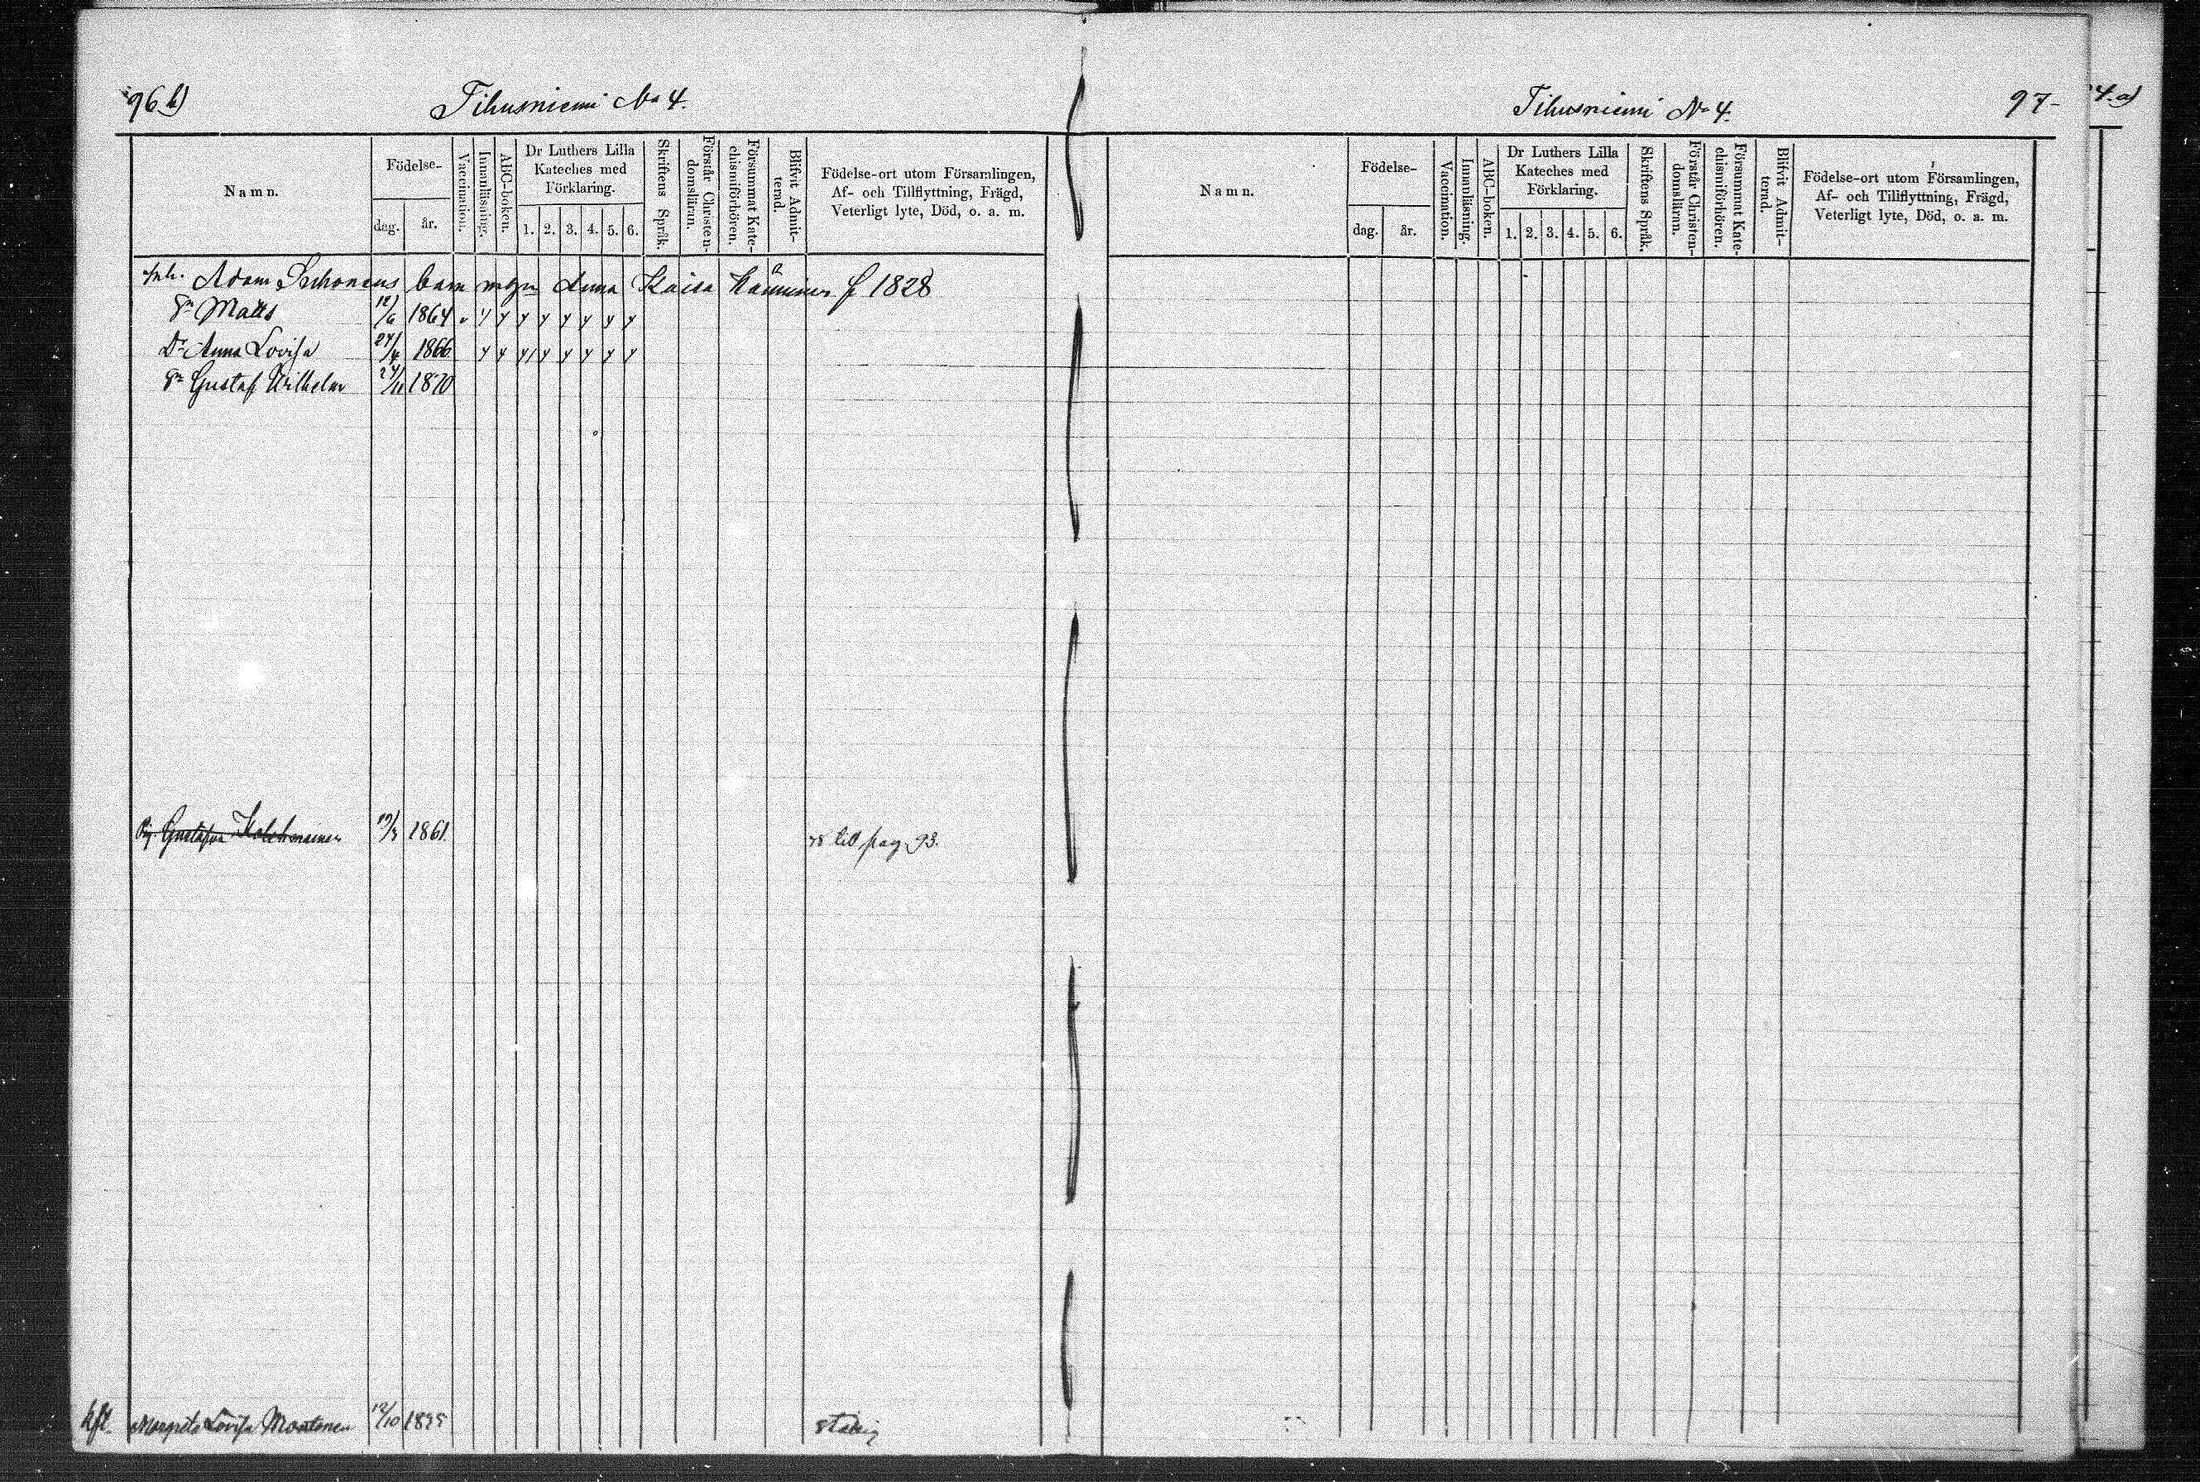 96 b)
Tihusniemi No 4.
Namn.
Födelse-
dag.
år.
Vaccination.
Innanläsning.
ABC-boken.
Dr Luthers Lilla
Kateches med
Förklaring.
1. 2. 3. 4. 5. 6.
Skriftens Språk.
Förstår Christen-
domsläran.
Försummat Kate-
chismiförhören.
Blifvit Admit-
terad.
Födelse-ort utom Församlingen,
Af- och Tillflyttning, Frägd,
Veterligt lyte, Död, o. a. m.
Inh. Adam barn m Anna Kaisa f 1828
Sn Matts 12/6 1864
Dr Anna Lovisa 24/4 1866
Sn Gustaf Wilhelm 24/11 1870
Pig. Gustafva 19/3 1861.
78 till pag 93.
Margreta Lovisa 12/10
Tihusniemi No 4.
97-
Namn.
Födelse-
dag.
år.
Vaccination.
Innanläsning.
ABC-boken.
Dr Luthers Lilla
Kateches med
Förklaring.
1. 2. 3. 4. 5. 6.
Skriftens Språk.
Förstår Christen-
domsläran.
Försummat Kate-
chismiförhören.
Blifvit Admit-
terad.
Födelse-ort utom Församlingen,
Af- och Tillflyttning, Frägd,
Veterligt lyte, Död, o. a. m.
4.a)